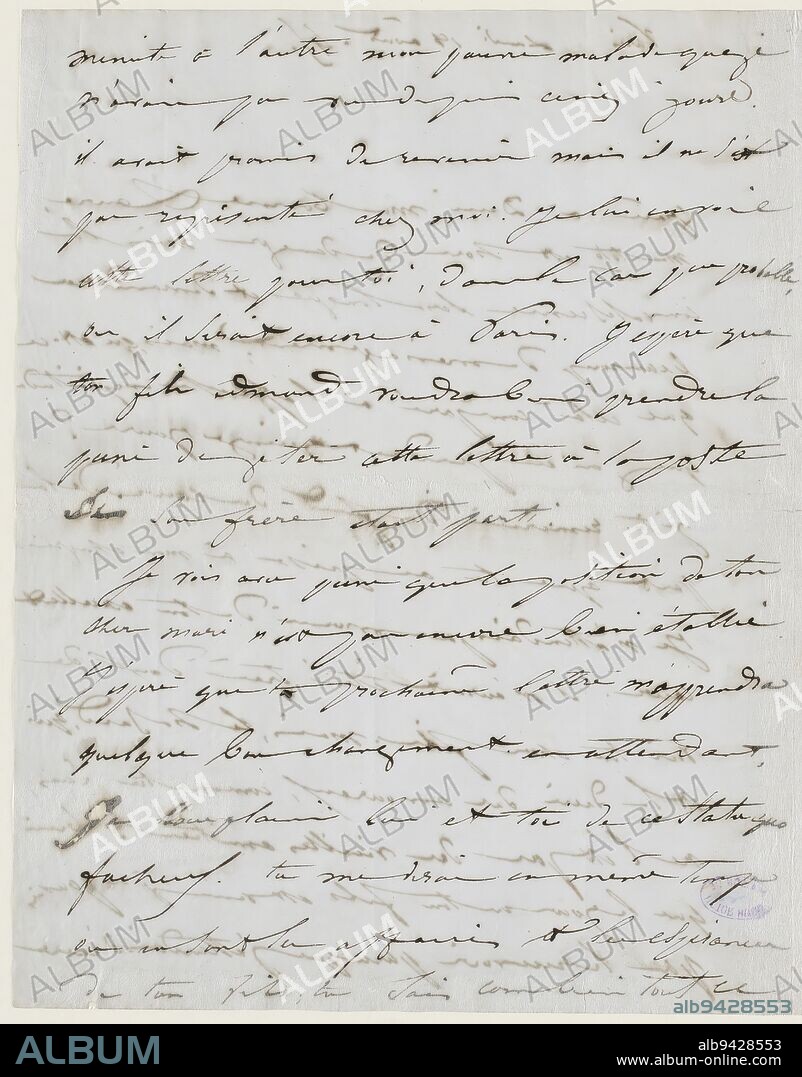 minute à l'autre mon pauvre malade que je
n'avais pas vu depuis cinq jours.
il avait promis de revenir mais il ne s'est
pas représenté chez moi. Je lui envoie
cette lettre pour toi, dans le cas peu probable,
ou il serait encore à Paris. J'espère que
ton fils edmond voudra bien prendre la
peine de jeter cette lettre à la poste
Si son frère était parti.
Je vois avec peine que la position de ton
cher mari n'est pas encore bien établie
J'espère que ta prochaine lettre m'apprendra
quelque bon changement. en attendant,
Je vous plains lui et toi de ce statu quo
facheux. tu me diras en même temps
ou en sont les affaires et les espérances
de ton fils, tu sais combien tout ce
ALBUM
alb9428553
ALBUM
alb9428553
www.album-online.com